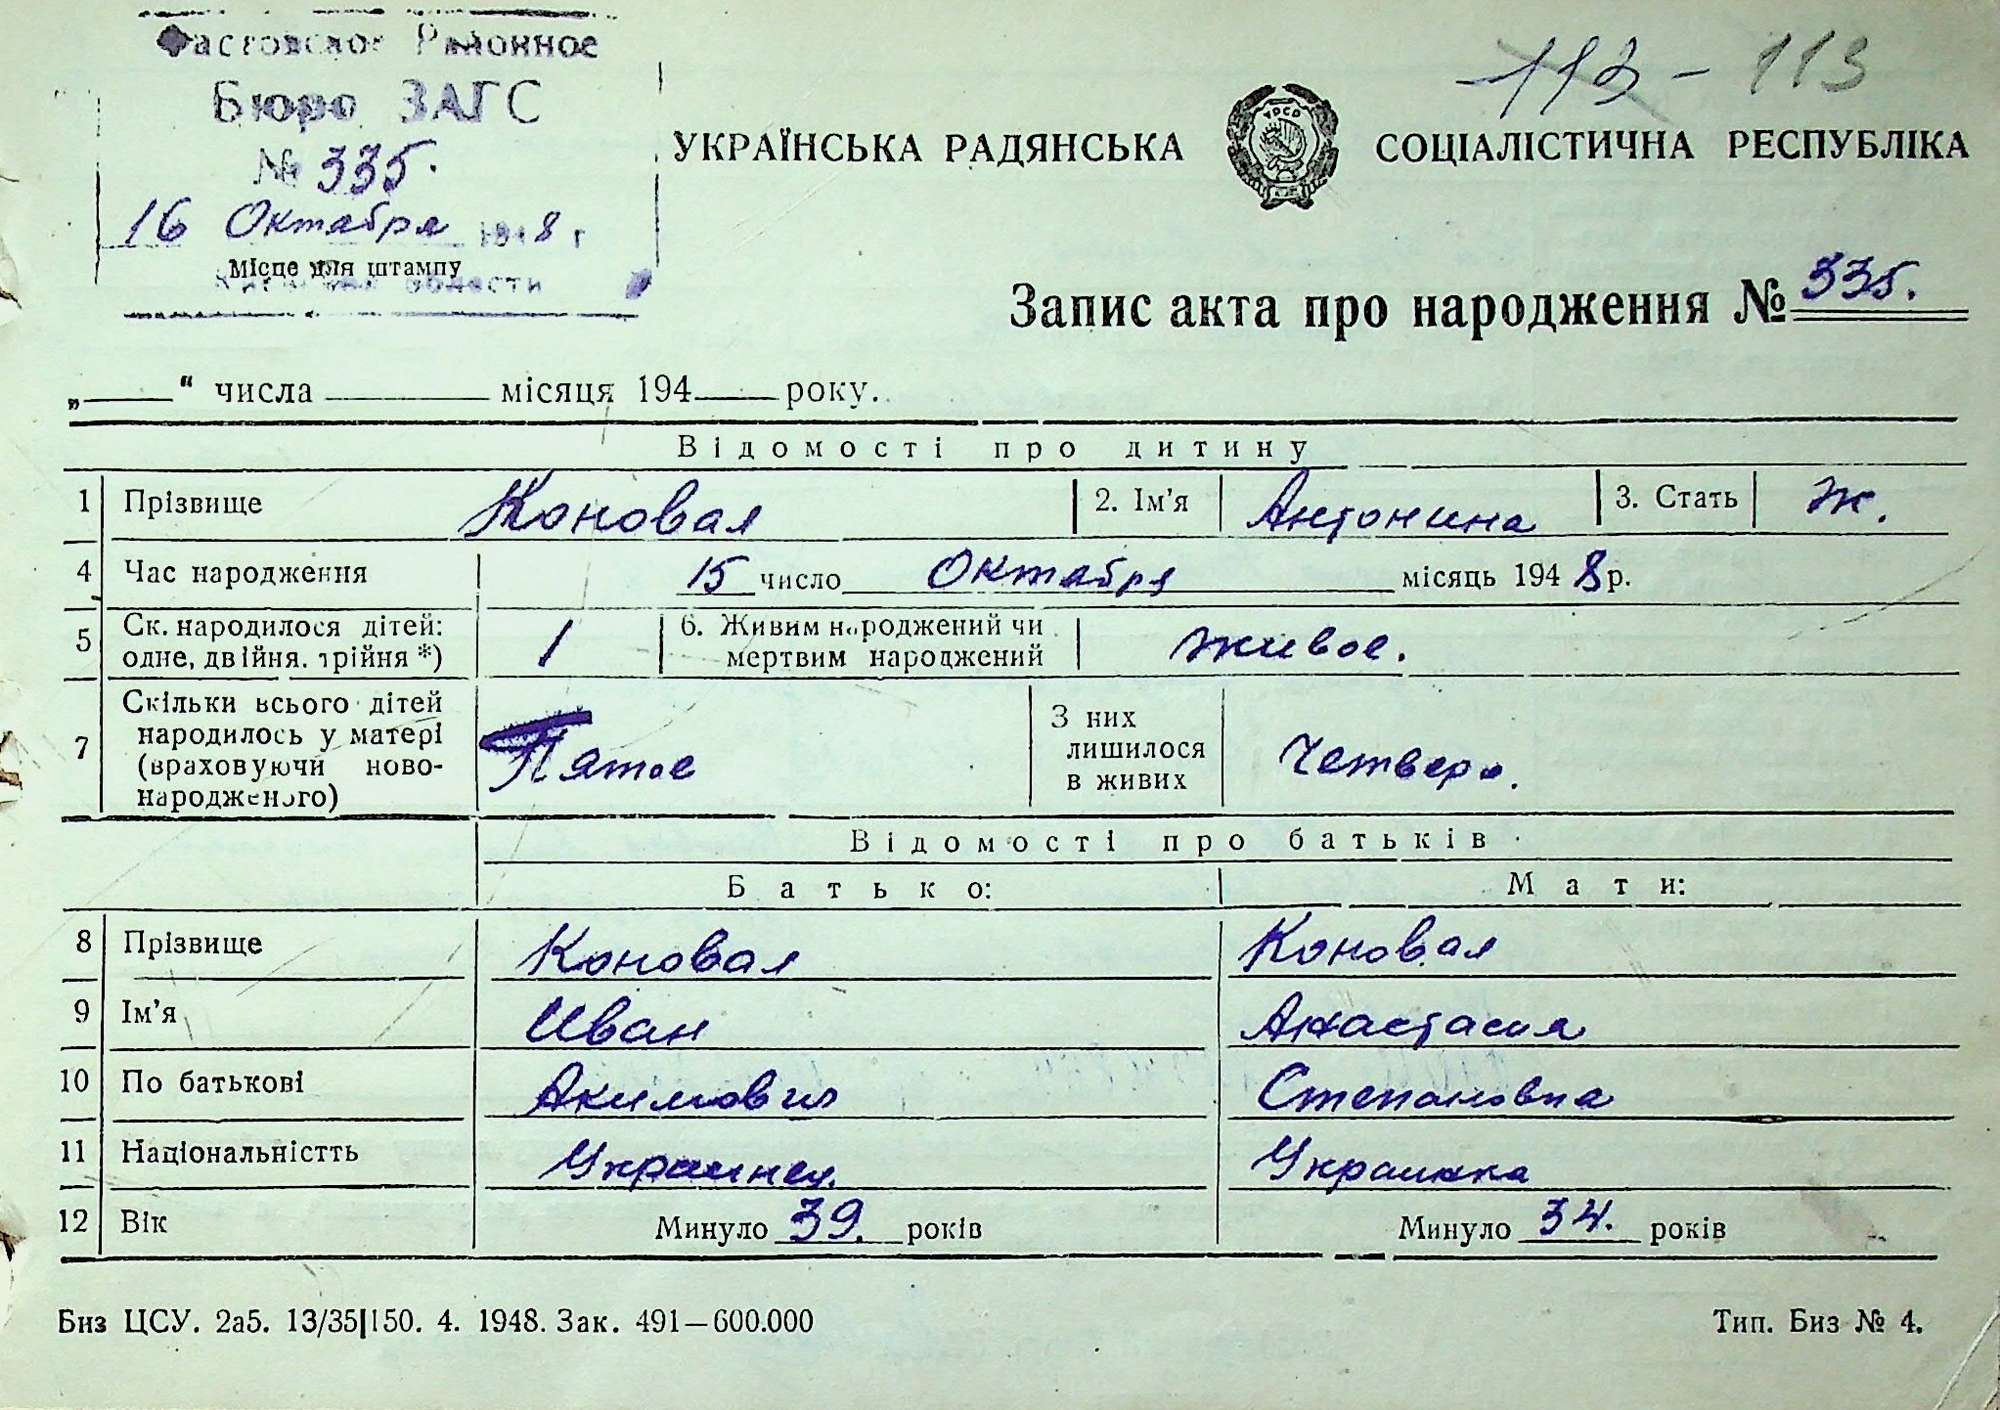 Фастовское Районное
Бюро ЗАГС
№ 335.
16 Октября 1948 г
Місце для штампу
области
112 - 113
УКРАЇНСЬКА РАДЯНСЬКА СОЦІАЛІСТИЧНА РЕСПУБЛІКА
УРСР
Запис акта про народження № 335.
„ “ числа місяця 194 року.
Відомості про дитину
1 Прізвище Коновал 2. Ім'я Антонина 3. Стать Ж.
4 Час народження 15 число Октября місяць 1948 р.
5 Ск. народилося дітей: одне, двійня, трійня *) 1 6. Живим народжений чи мертвим народжений живое.
7 Скільки всього дітей народилось у матері (враховуючи ново-народженого) Пятое З них лишилося в живих Четверо.
Відомості про батьків
Батько: Мати:
8 Прізвище Коновал Коновал
9 Ім'я Иван Анастасия
10 По батькові Акимович Степановна
11 Національністть Украинец. Украинка
12 Вік Минуло 39. років Минуло 34. років
Биз ЦСУ. 2а5. 13/35|150. 4. 1948. Зак. 491—600.000 Тип. Биз № 4.